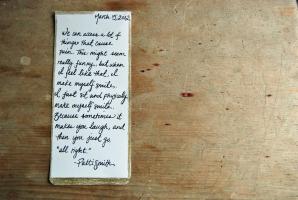 March 15, 2012
We can access a lot of
things that cause
pain. This might seem
really funny, but when
I feel like that, I
make myself smile.
I just sit and physically
make myself smile.
Because sometimes it
makes you laugh, and
then you just go
"all right."
-Patti Smith